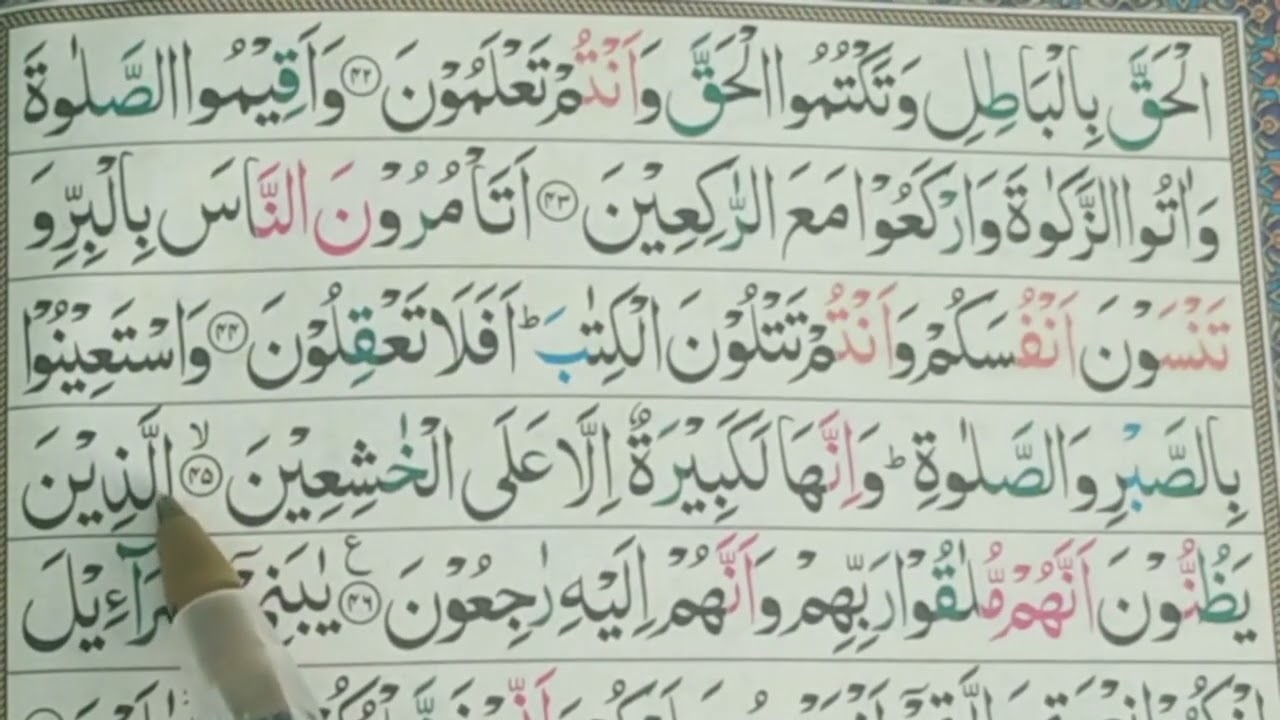 الْحَقَّ بِالْبَاطِلِ وَتَكْتُمُوا الْحَقَّ وَاَنْتُمْ تَعْلَمُوْنَ ﴿۴۲﴾ وَاَقِيْمُوا الصَّلٰوةَ
وَاٰتُوا الزَّكٰوةَ وَارْكَعُوْا مَعَ الرّٰكِعِيْنَ ﴿۴۳﴾ اَتَاْمُرُوْنَ النَّاسَ بِالْبِرِّ وَ
تَنْسَوْنَ اَنْفُسَكُمْ وَاَنْتُمْ تَتْلُوْنَ الْكِتٰبَ ؕ اَفَلَا تَعْقِلُوْنَ ﴿۴۴﴾ وَاسْتَعِيْنُوْا
بِالصَّبْرِ وَالصَّلٰوةِ ؕ وَاِنَّهَا لَكَبِيْرَةٌ اِلَّا عَلَى الْخٰشِعِيْنَ ﴿۴۵﴾ ۙ الَّذِيْنَ
يَظُنُّوْنَ اَنَّهُمْ مُّلٰقُوْا رَبِّهِمْ وَاَنَّهُمْ اِلَيْهِ رٰجِعُوْنَ ﴿۴۶﴾ ع يٰبَنِيْۤ